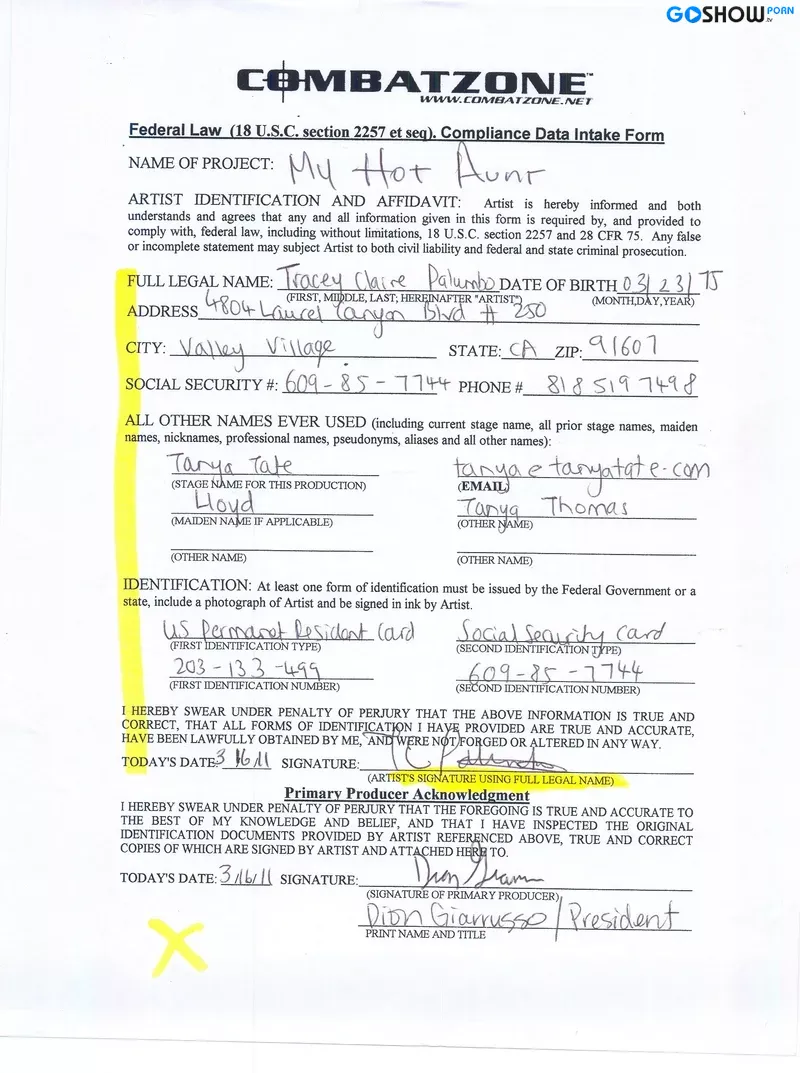 GOSHOW PORN .tv
COMBATZONE™
WWW.COMBATZONE.NET
Federal Law (18 U.S.C. section 2257 et seq). Compliance Data Intake Form
NAME OF PROJECT:
ARTIST IDENTIFICATION AND AFFIDAVIT: Artist is hereby informed and both
understands and agrees that any and all information given in this form is required by, and provided to
comply with, federal law, including without limitations, 18 U.S.C. section 2257 and 28 CFR 75. Any false
or incomplete statement may subject Artist to both civil liability and federal and state criminal prosecution.
FULL LEGAL NAME: DATE OF BIRTH
(FIRST, MIDDLE, LAST; HEREINAFTER "ARTIST") (MONTH,DAY,YEAR)
ADDRESS
CITY: STATE: ZIP:
SOCIAL SECURITY #: PHONE #
ALL OTHER NAMES EVER USED (including current stage name, all prior stage names, maiden
names, nicknames, professional names, pseudonyms, aliases and all other names):
(STAGE NAME FOR THIS PRODUCTION) (EMAIL)
(MAIDEN NAME IF APPLICABLE) (OTHER NAME)
(OTHER NAME) (OTHER NAME)
IDENTIFICATION: At least one form of identification must be issued by the Federal Government or a
state, include a photograph of Artist and be signed in ink by Artist.
(FIRST IDENTIFICATION TYPE) (SECOND IDENTIFICATION TYPE)
(FIRST IDENTIFICATION NUMBER) (SECOND IDENTIFICATION NUMBER)
I HEREBY SWEAR UNDER PENALTY OF PERJURY THAT THE ABOVE INFORMATION IS TRUE AND
CORRECT, THAT ALL FORMS OF IDENTIFICATION I HAVE PROVIDED ARE TRUE AND ACCURATE,
HAVE BEEN LAWFULLY OBTAINED BY ME, AND WERE NOT FORGED OR ALTERED IN ANY WAY.
TODAY'S DATE: SIGNATURE:
(ARTIST'S SIGNATURE USING FULL LEGAL NAME)
Primary Producer Acknowledgment
I HEREBY SWEAR UNDER PENALTY OF PERJURY THAT THE FOREGOING IS TRUE AND ACCURATE TO
THE BEST OF MY KNOWLEDGE AND BELIEF, AND THAT I HAVE INSPECTED THE ORIGINAL
IDENTIFICATION DOCUMENTS PROVIDED BY ARTIST REFERENCED ABOVE, TRUE AND CORRECT
COPIES OF WHICH ARE SIGNED BY ARTIST AND ATTACHED HERE TO.
TODAY'S DATE: SIGNATURE:
(SIGNATURE OF PRIMARY PRODUCER)
PRINT NAME AND TITLE